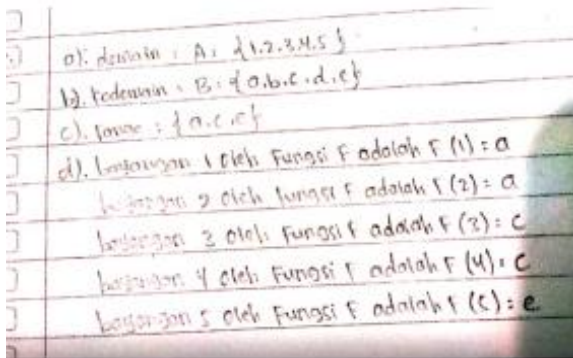 a). domain : A : {1.2.3.4.5}
b). kodomain : B : {a.b.c.d.e}
c). range : {a.c.e}
d). bayangan 1 oleh Fungsi F adalah F (1) = a
bayangan 2 oleh fungsi F adalah F (2) = a
bayangan 3 oleh Fungsi F adalah F (3) = c
bayangan 4 oleh Fungsi F adalah F (4) = c
bayangan 5 oleh Fungsi F adalah F (5) = e